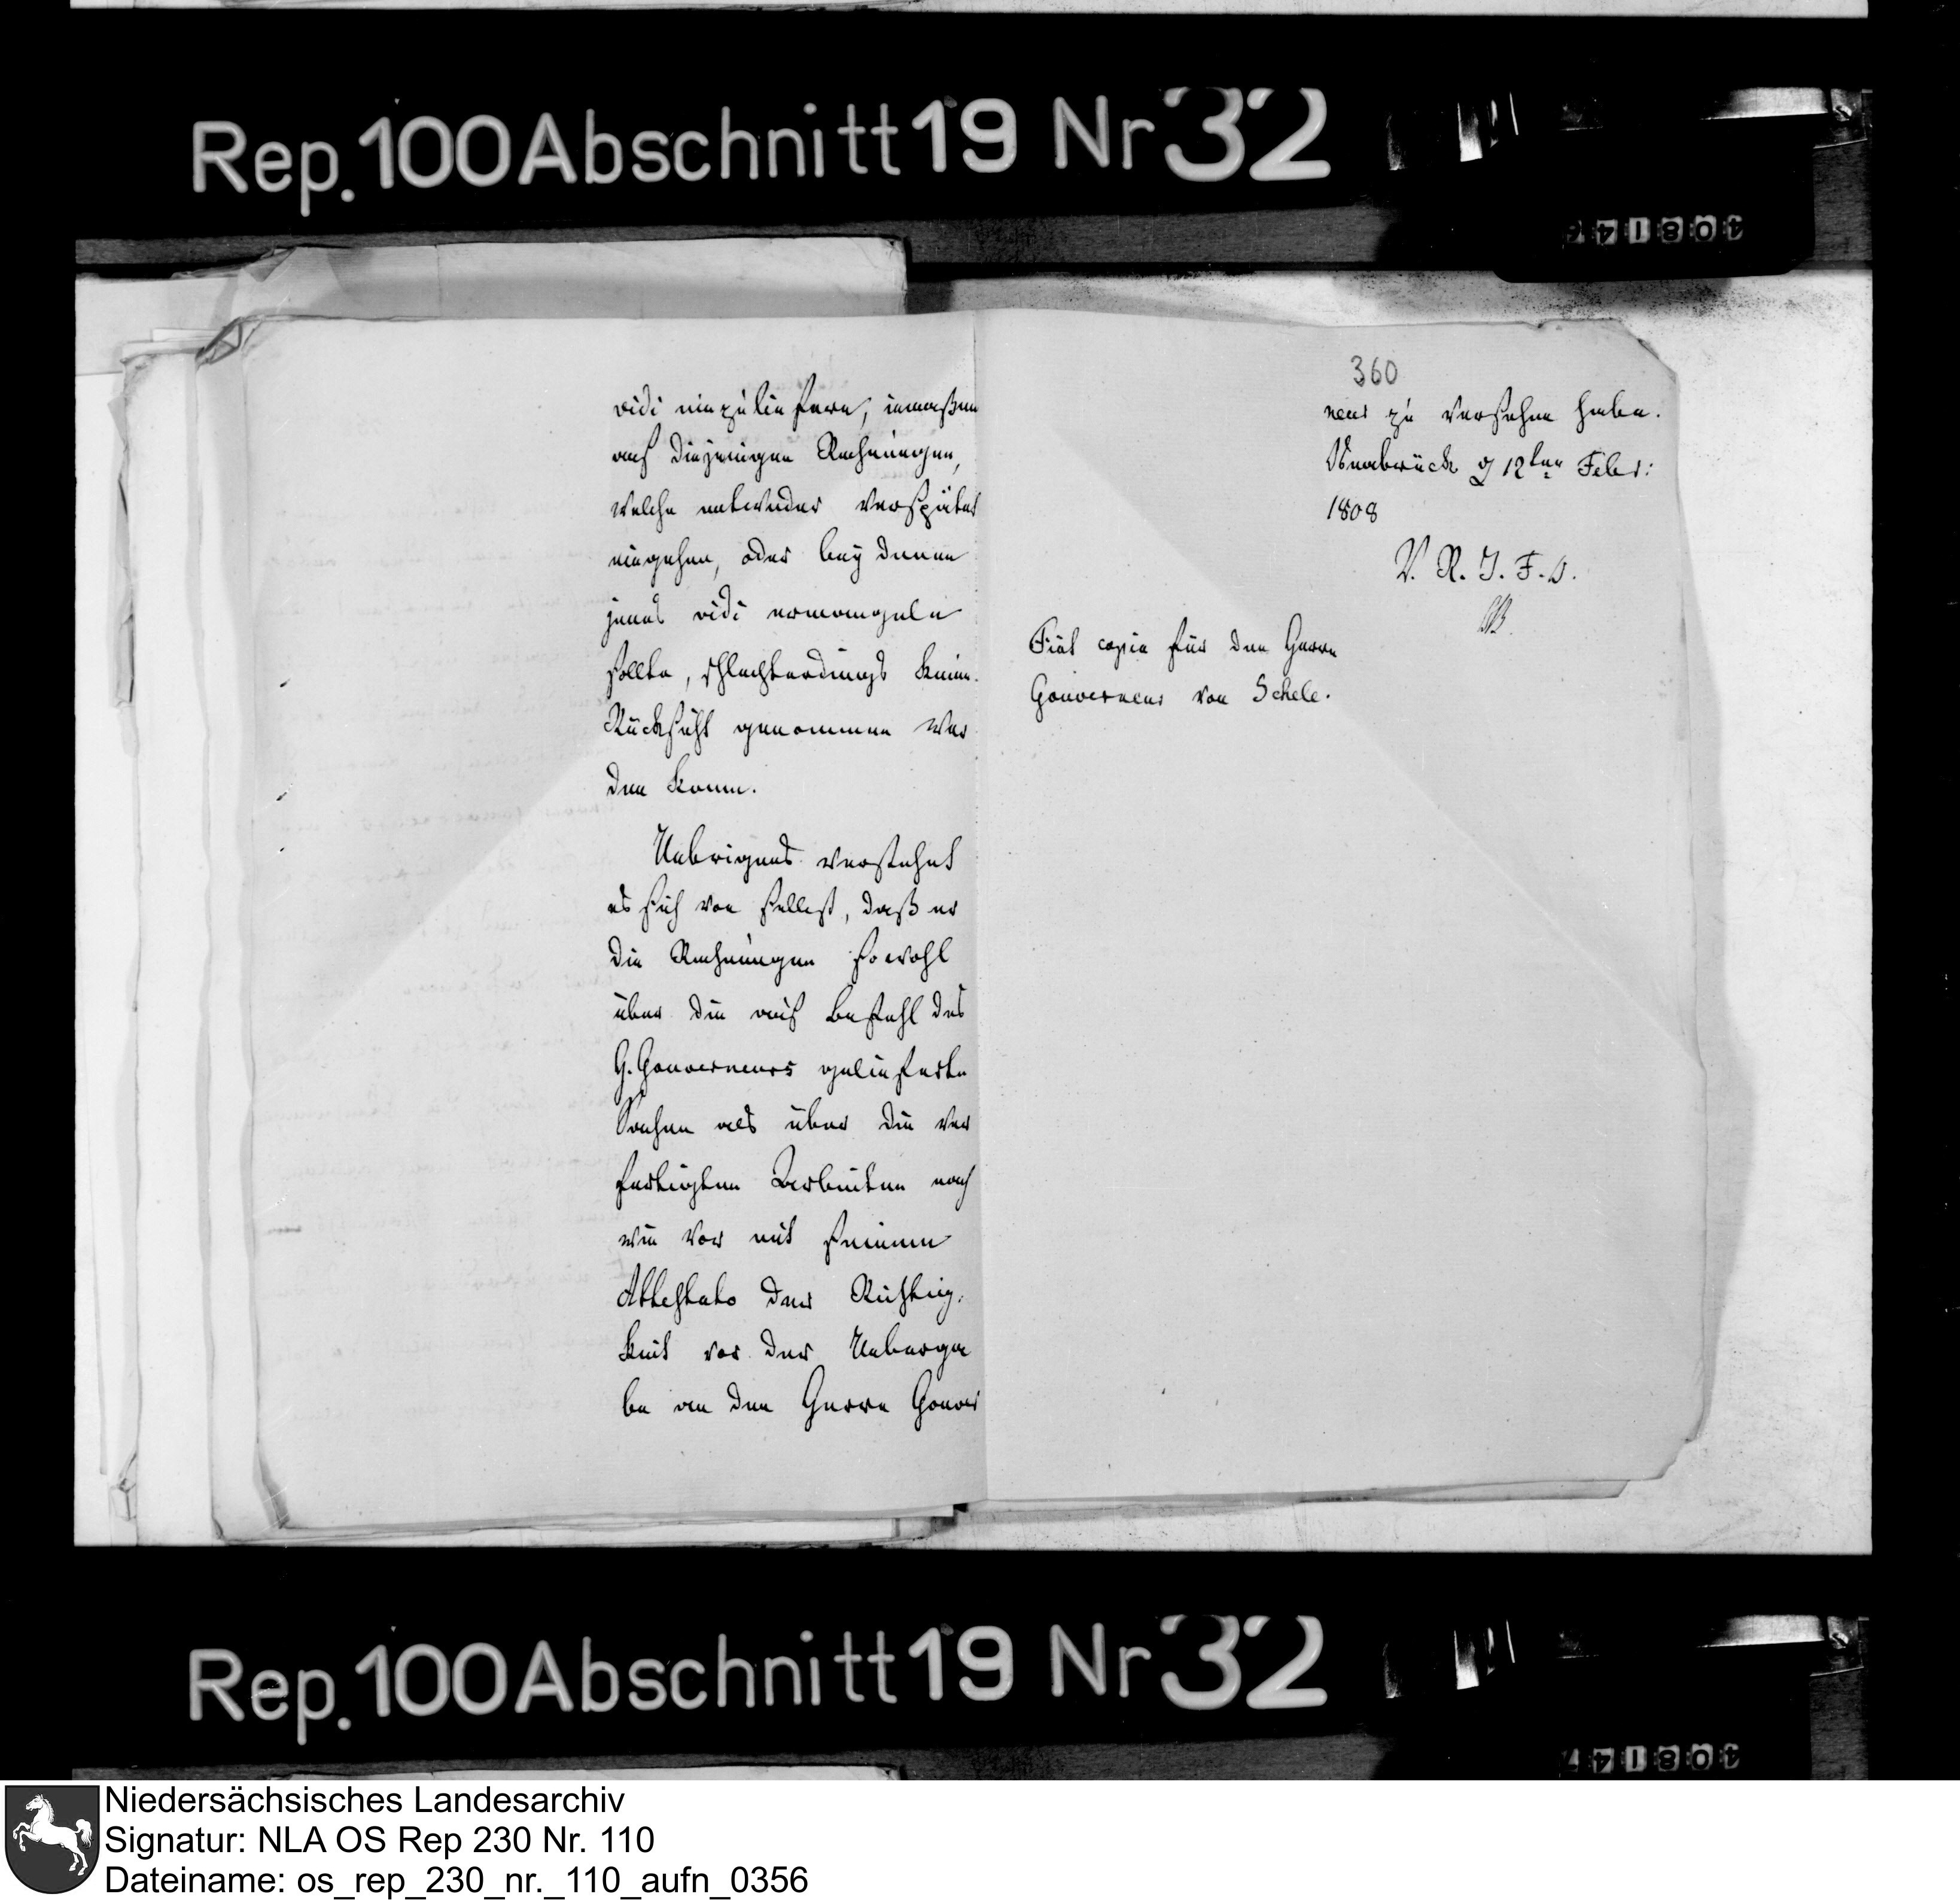 Rep. 100 Abschnitt 19 Nr 32
vidi einzuliefern, inmaßen
auf diejenigen Rechnungen,
welche entweder verspätet
eingehen, oder bey denen
jenes vidi ermangeln
sollte, schlechterdings keine
Rücksicht genommen wer
den kann.
Uebrigens verstehet
es sich von selbst, daß er
die Rechnungen sowohl
über die auf Befehl des
H. Gouverneurs gelieferte
Sachen als über die ver
fertigten Arbeiten nach
wie vor mit seinem
Attestato der Richtig-
keit vor der Ueberga
be an den Herrn Gouver
360
neur zu versehen habe.
Osnabrück d 12ten Febr:
1808
V. R. J. F. O.
Fiat copia für den Herrn
Gouverneur von Schele.
Rep. 100 Abschnitt 19 Nr 32
Niedersächsisches Landesarchiv
Signatur: NLA OS Rep 230 Nr. 110
Dateiname: os_rep_230_nr._110_aufn_0356